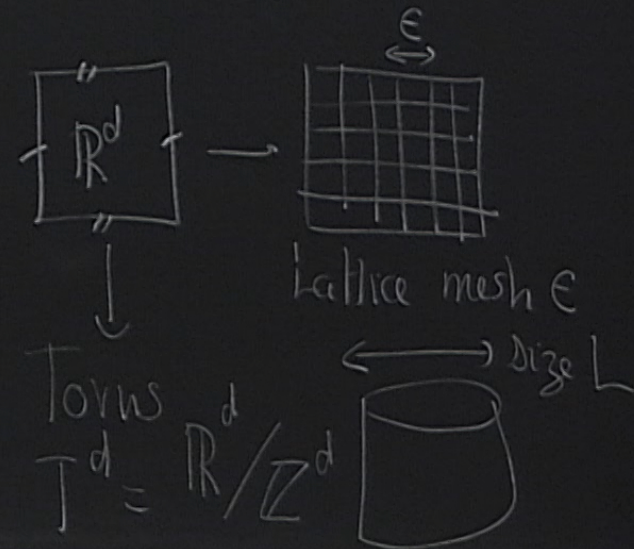 ϵ
ℝᵈ
Lattice mesh ϵ
size L
Torus
Tᵈ = ℝᵈ/ℤᵈ